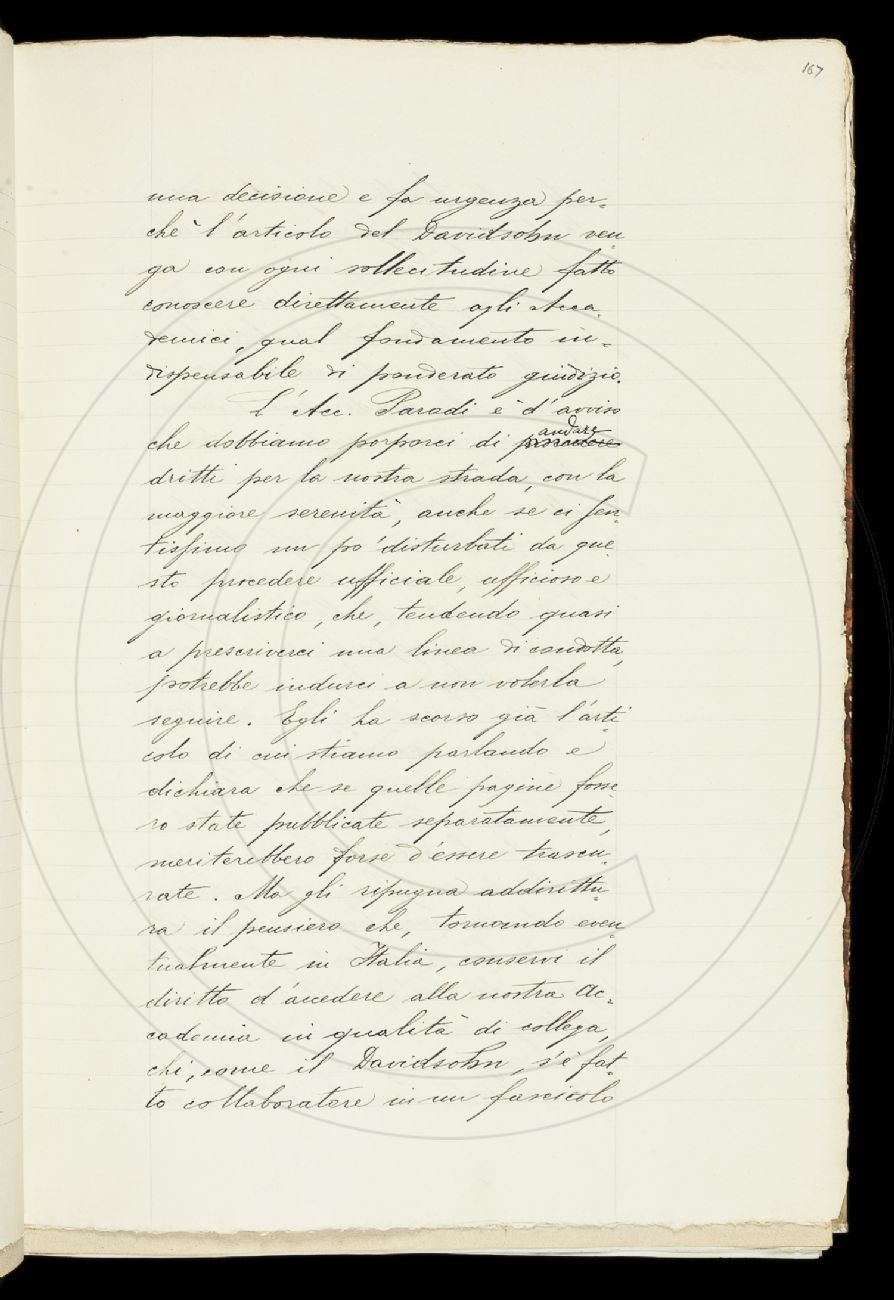 167
una decisione e fa urgenza per-
chè l'articolo del Davidsohn ven-
ga con ogni sollecitudine fatto
conoscere direttamente agli Acca-
demici, qual fondamento in-
dispensabile di ponderato giudizio.
L'Acc. Parodi è d'avviso
andare
che dobbiamo porporci di procedere
dritti per la nostra strada, con la
maggiore serenità, anche se ci sen-
tissimo un po' disturbati da que-
sto procedere ufficiale, ufficioso e
giornalistico, che, tendendo quasi
a prescriverci una linea di condotta,
potrebbe indurci a non volerla
seguire. Egli ha scorso già l'arti-
colo di cui stiamo parlando e
dichiara che se quelle pagine fosse-
ro state pubblicate separatamente,
meriterebbero forse d'essere trascu-
rate. Ma gli ripugna addirittu-
ra il pensiero che, tornando even-
tualmente in Italia, conservi il
diritto d'accedere alla nostra Ac-
cademia in qualità di collega,
chi, come il Davidsohn, s'è fat-
to collaboratore in un fascicolo